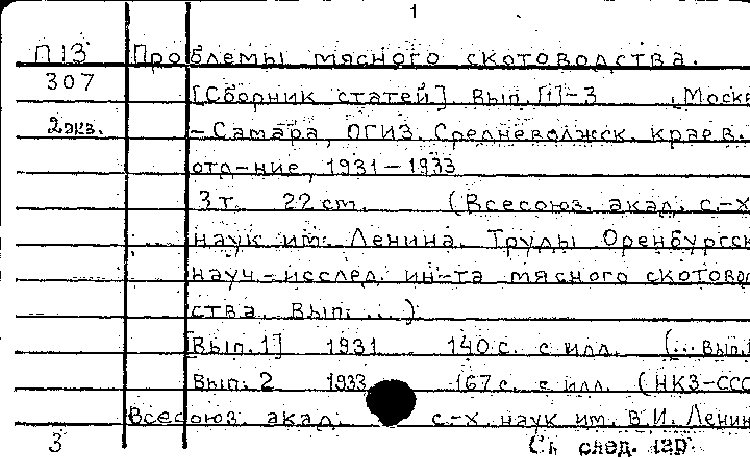 1
П13 Проблемы мясного скотоводства.
307 [Сборник статей] Вып. [1]-3 , Москв
2 экз. -Самара, ОГИЗ. Средневолжск. краев.
отд-ние, 1931-1933
3 т. 22 cm. (Всесоюз. акад. с.-х
наук им. Ленина. Труды Оренбургск
науч-исслед. ин-та мясного скотовод
ства. Вып. ...)
[Вып. 1] 1931 140 с. с илл. (...Вып.1
Вып. 2 1933 167 с. с илл. (НКЗ-ССС
Всесоюз. акад. с.-х. наук им. В.И. Ленин
3 См след. кар